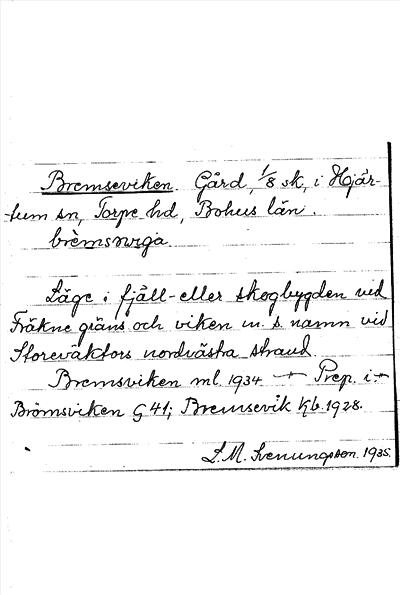 Bremseviken. Gård, 1/8 sk, i Hjär-
tum sn, Torpe hd, Bohus län.
brèmsvviga
Läge i fjäll- eller skogbygden vid
Fräkne gräns och viken m. s. namn vid
Storevaktors nordvästra strand.
Bremsviken ml. 1934 — Prep. i. —
Brömsviken G 41; Bremsevik Kb. 1928.
S. M. Svenungsson. 1935.